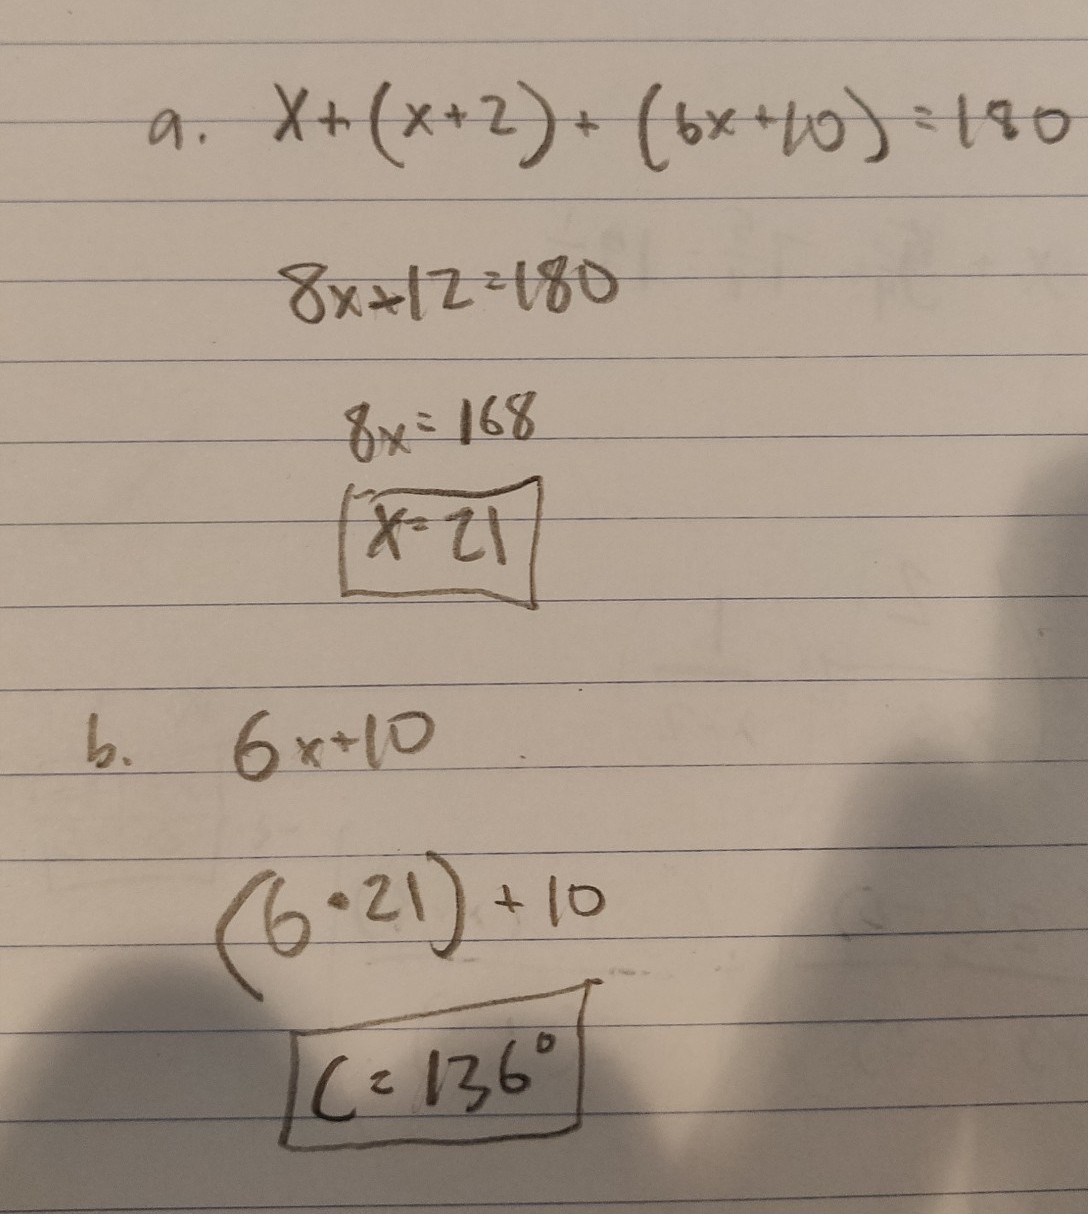 a. x+(x+2)+(6x+10)=180
8x+12=180
8x=168
x=21
b. 6x+10
(6·21)+10
C=136°